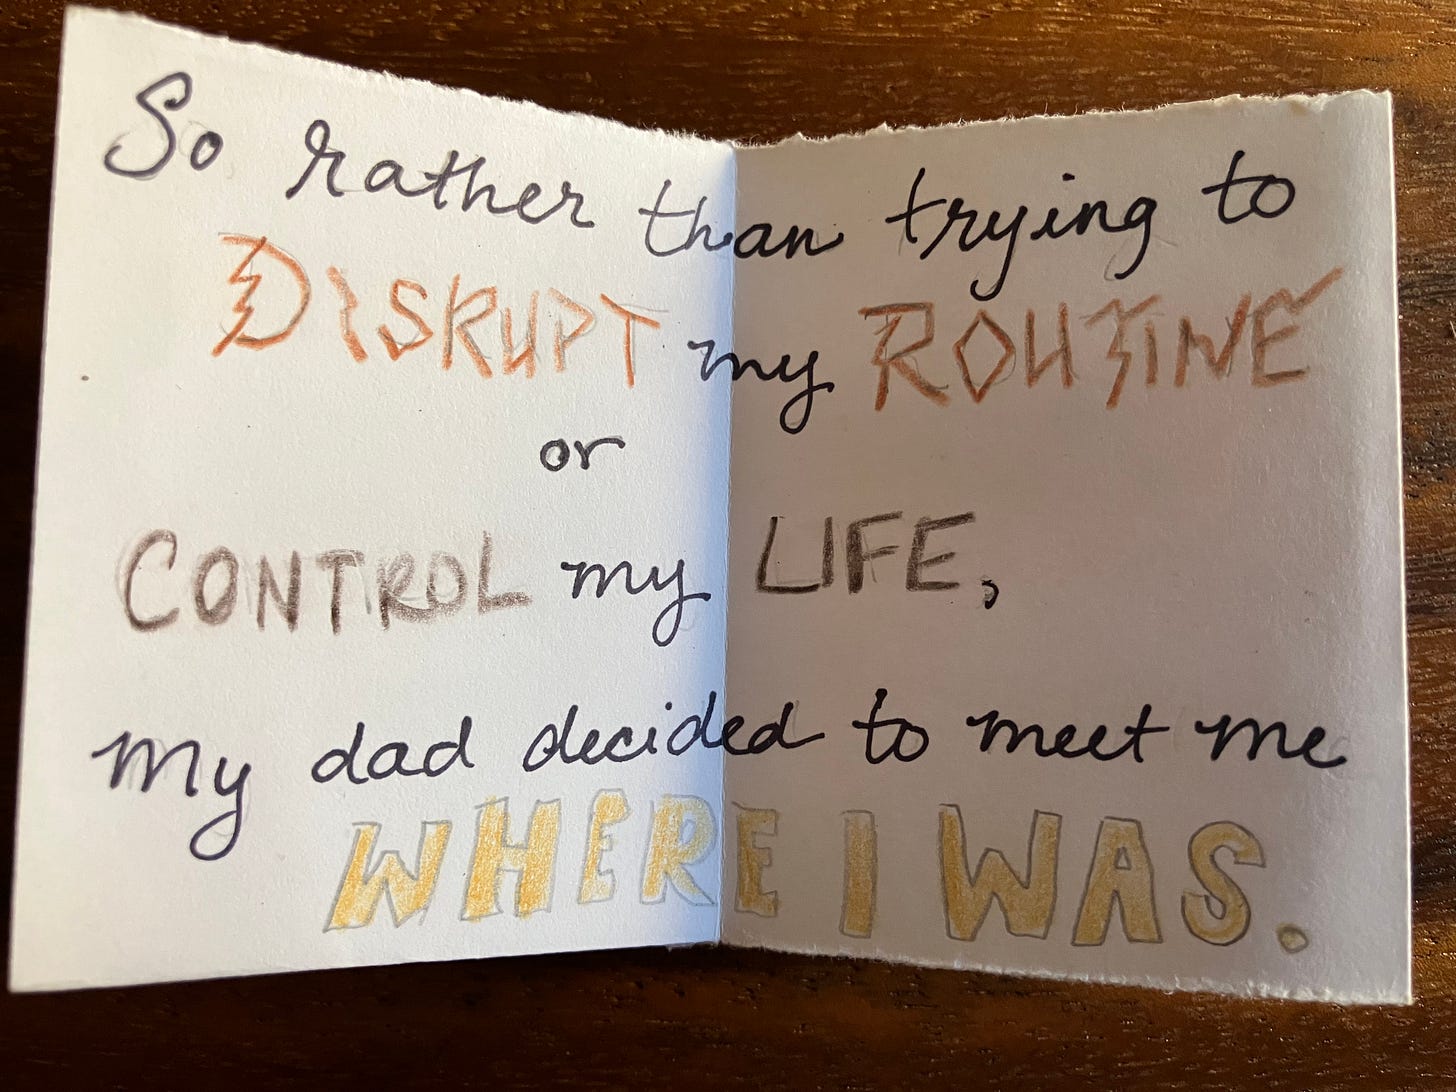 So rather than trying to
DISRUPT my ROUTINE
or
CONTROL my LIFE,
my dad decided to meet me
WHERE I WAS.